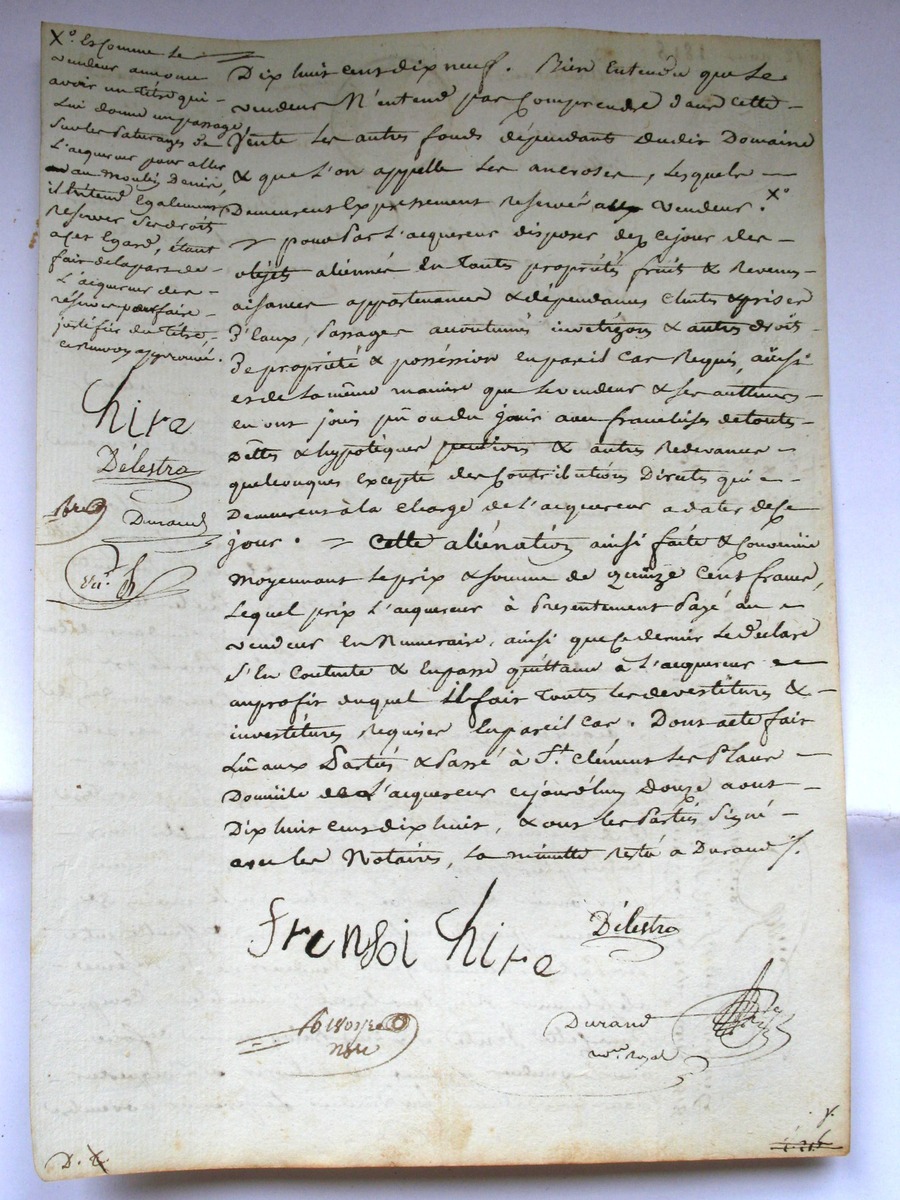 Xº. Et Comme Le
vendeur annonce
avoir un titre qui
Lui donne un passage
Sur les Paturages de
L'acquereur pour aller
au moulin Denier,
il Entend Egalement
reserver Ses droits
a cet Egard, étant
fait de la part de
L'acquereur des
réserves pour faire
justifier du titre
ce renvoy approuvé.
hire
Délestra
Durand
Dix huit cent dix neuf. Bien Entendu que Le
vendeur N'entend pas Comprendre dans Cette
Vente Les autres fonds dépendants dudit Domaine
& que L'on appelle Les ancroses, Lesquels
Demeurent Expressement reservés aux vendeur. Xº
pour Par L'acquereur disposer dez cejour des
objets aliennés En toutes propriétés fruit & Revenus
aisances appartenances & dépendances Entrés & prises
D'eaux, Passages accoutumés & autres droits
De propriété & posséssion En pareil Cas Requis, aussi
et de La même maniere que Le vendeur & Ses autheurs
en ont joui pû ou du jouir avec franchises de toutes
Dêttes & hypotèques pentions & autres Redevances
quelconques Excepté des Contributions Directes qui
Demeurent à la Charge de L'acquereur a dater de Ce
jour. Cette aliénation ainsi faite & Convenüe
Moyennant Le prix & Somme de quinze Cent francs,
Lequel prix L'acquereur à Presentement Payé au
vendeur En Numeraire, ainsi que Ce dernier Le déclare
S'En Contente & En passe quittance à L'acquereur
au profit duquel il fait toutes Les devestitures &
investitures Requises En pareil Cas. Dont acte fait
Lû aux Parties & Passé à St. Clément Les Places
Domicile de L'acquereur cejourd'huy Douze aout
Dix huit cent dix huit, & ont les Parties Signé
avec les Notaires, La minutte resté a Durand /.
fransoi hire
Délestra
Durand
nore. royal
D.